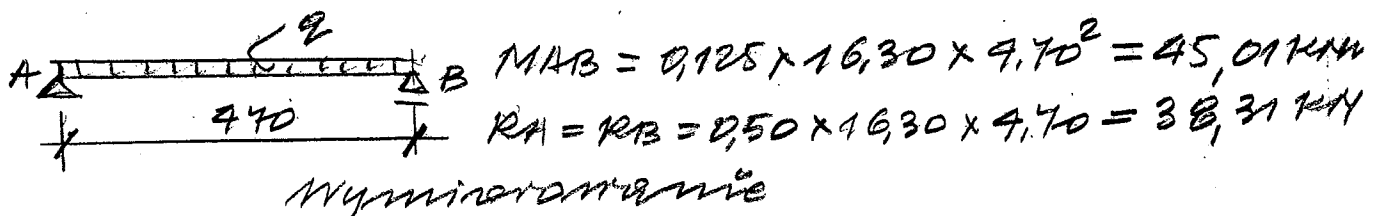 q
A B MAB = 0,125 × 16,30 × 4.70² = 45,01 KNm
470 RA = RB = 0,50 × 16,30 × 4,70 = 38,31 KN
Wymiarowanie